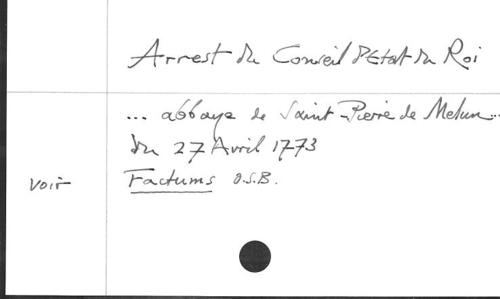 Arrest du Conseil d'Etat du Roi
... abbaye de Saint-Pierre de Melun...
du 27 Avril 1773
voir Factums O.S.B.